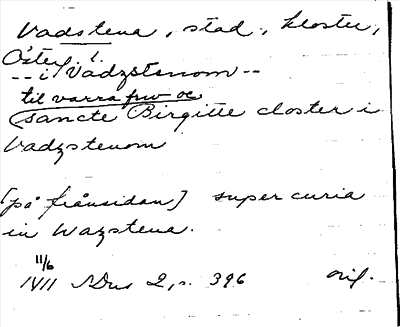 Vadstena, stad, kloster,
Österg.
-- i Vadzstenom --
til varra frw oc
sancte Birgitte closter i
Vadzstenom
[på frånsidan] super curia
in Wazstena.
11/6
1411 SDns 2, s. 396 orig.